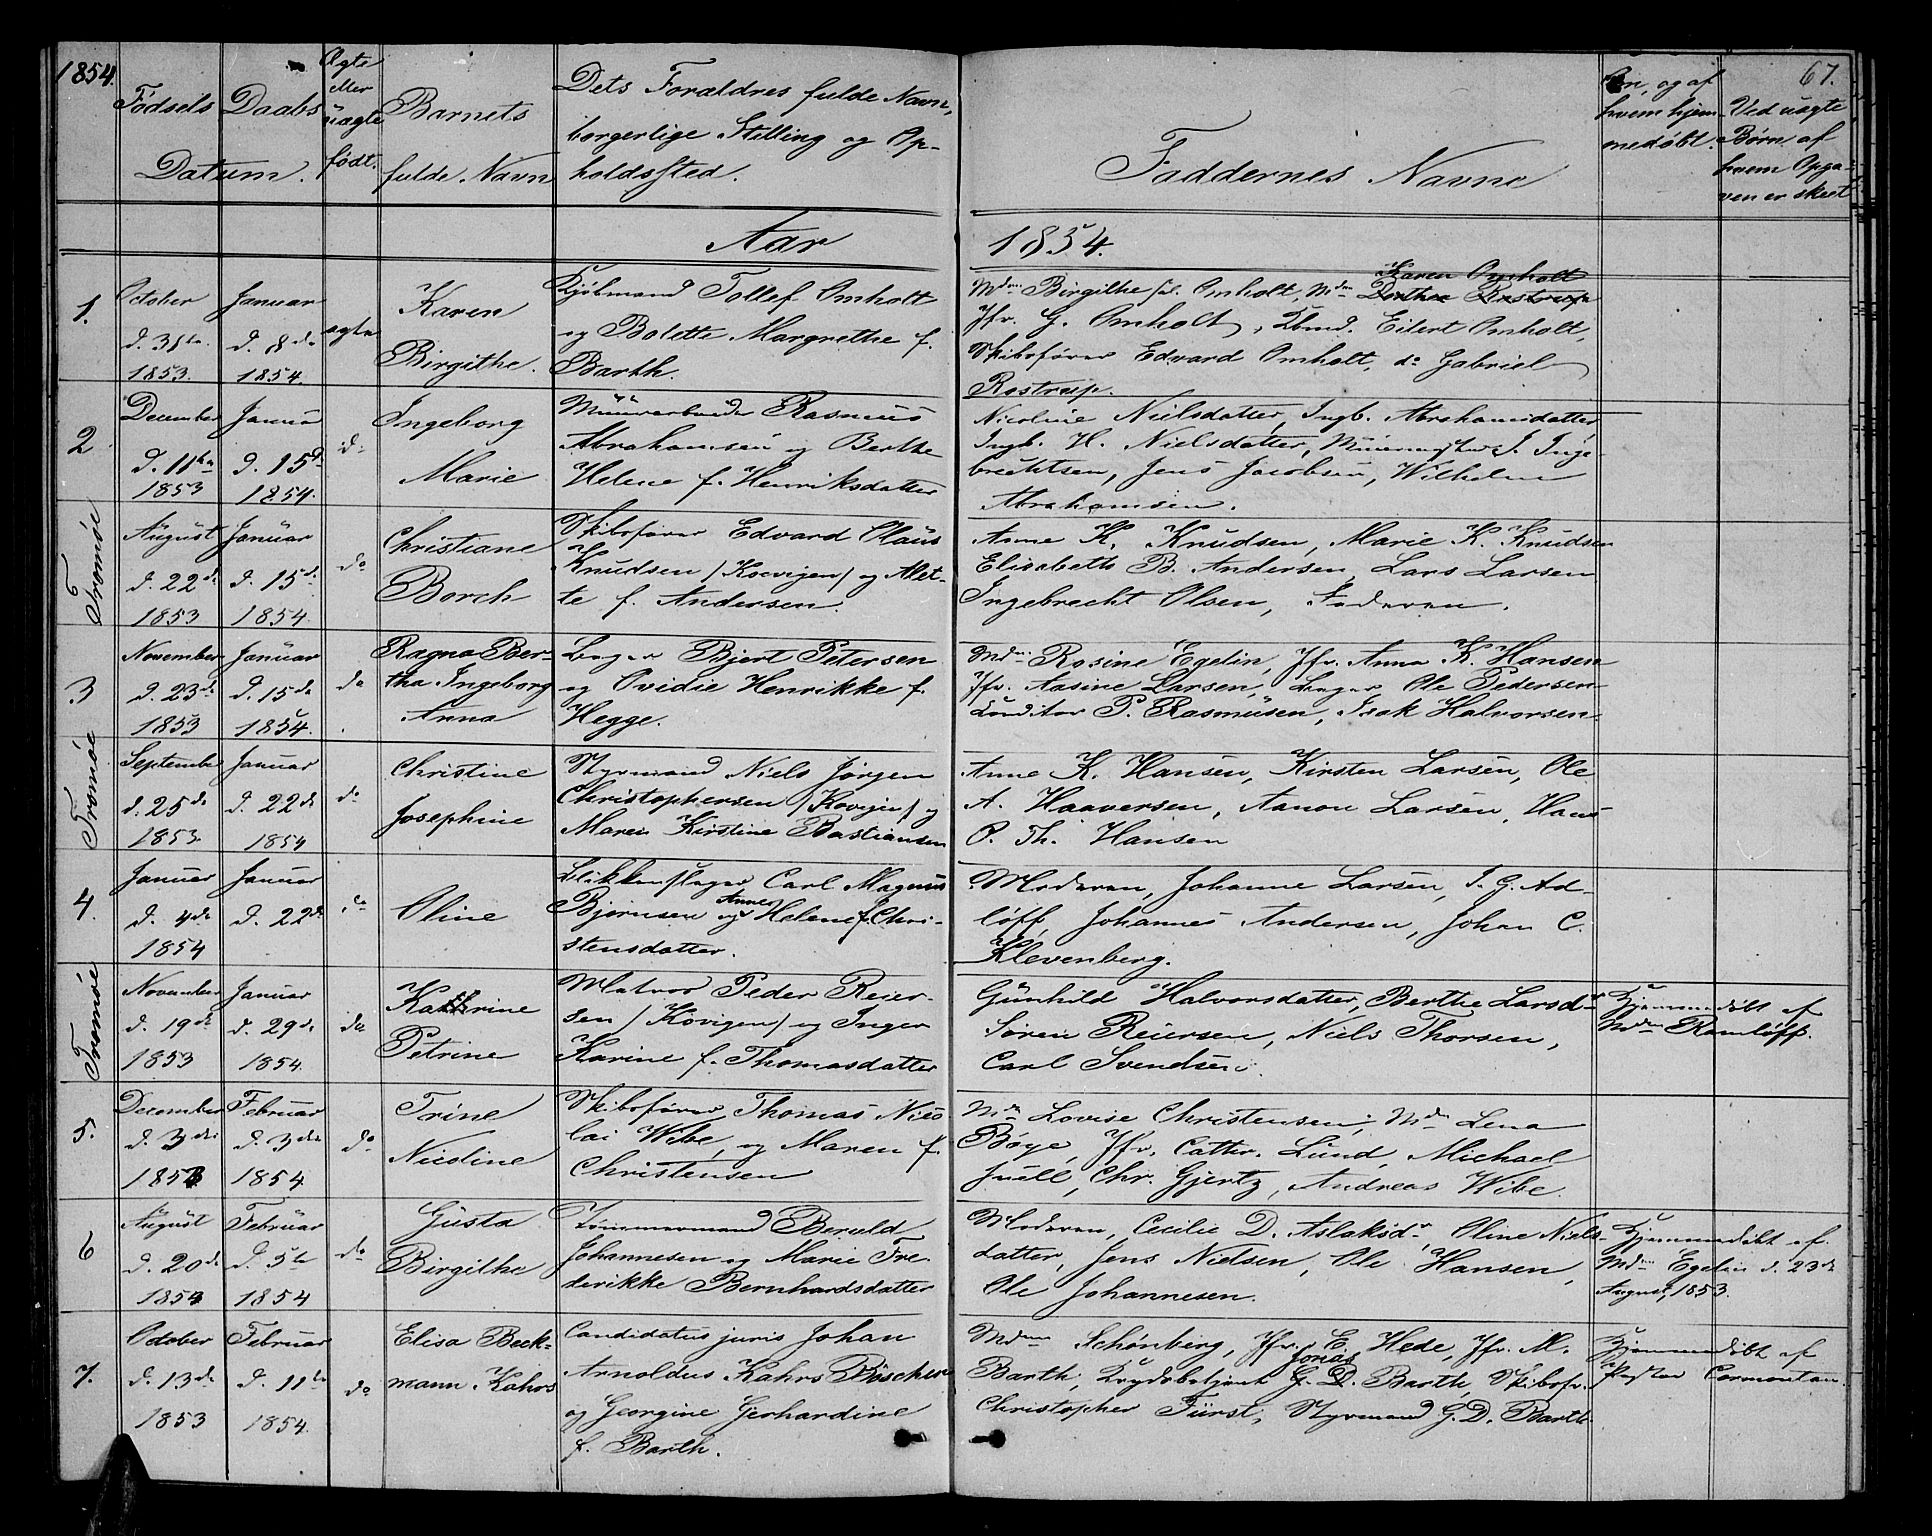 1854.
67.
Fødsels Daabs
Datum.
Ægte
eller
uægte
født.
Barnets
fulde Navn
Dets Forældres fulde Navn,
borgerlige Stilling og Op-
holdssted.
Faddernes Navne
Om, og af
hvem hjem-
medøbt.
Ved uægte
Børn, af
hvem Opga-
ven er skeet
Aar 1854.
1.
October
d. 31te
1853.
Januar
d. 8de
1854.
ægte
Karen
Birgithe.
Kjøbmand Tollef Omholt
og Bolette Margrethe f.
Barth.
Karen Omholt
Mdm Birgithe Omholt, Mdm Dorthea Rostrup
Jfr. G. Omholt, Kbmd. Eilert Omholt,
Skibsfører Edvard Omholt, do Gabriel
Rostrup.
2
December
d. 11te
1853
Januar
d. 15de
1854.
do
Ingeborg
Marie
Muurarbeider Rasmus
Abrahamsen og Berthe
Helene f. Henriksdatter
Nicoline Nielsdatter, Ingb. Abrahamsdatter
Ingb. H. Nielsdatter, Muurmester J. Inge-
brechtsen, Jens Jacobsen, Wilhelm
Abrahamsen.
Tromøe
August
d. 22de
1853
Januar
d. 15de
1854.
do
Christiane
Borch
Skibsfører Edvard Olaus
Knudsen / Kovigen / og Alet-
te f. Andersen.
Anne K. Knudsen, Marie K. Knudsen
Elisabeth B. Andersen, Lars Larsen
Ingebrecht Olsen, Faderen.
3
November
d. 23de
1853
Januar
d. 15de
1854.
do
Ragna Ber-
tha Ingeborg
Anna
Bager Bjert Petersen
og Ovidie Henrikke f.
Hegge.
Mdm Rosine Egelin, Jfr. Anna K. Hansen
Jfr. Aasine Larsen, Bager Ole Pedersen
Conditor P. Rasmusen, Isak Halvorsen.
Tromøe
September
d. 25de
1853
Januar
d. 22de
1854
do
Christine
Josephine
Styrmand Niels Jørgen
Christophersen / Kovigen / og
Maren Kirstine Bastiansen
Anne K. Hansen, Kirsten Larsen, Ole
A. Haaversen, Aanon Larsen, Hans
P. Th. Hansen
4.
Januar
d. 4de
1854
Januar
d. 22de
do
Oline
Blikkenslager Carl Magnus
Bjørnsen og Anne Helene f. Chri-
stensdatter.
Moderen, Johanne Larsen, J. G. Ad-
løff, Johannes Andersen, Johan C.
Klevenberg.
Tromøe
November
d. 19de
1853
Januar
d. 29de
1854.
do
Kathrine
Petrine
Matros Peder Reier-
sen / Kovigen / og Inger
Karine f. Thomasdatter
Gunhild Halvorsdatter, Berthe Larsdr
Søren Reiersen, Niels Thorsen,
Carl Svendsen.
Hjemmedøbt af
Mdm Ramløff.
5.
December
d. 3die
1853
Februar
d. 3die
1854.
do
Trine
Nicoline
Skibsfører Thomas Nico
lai Wibe, og Maren f.
Christensen
Mdm Lovise Christensen, Mdm Lena
Bøye, Jfr. Cattr. Lund, Michael
Juell, Chr. Gjertz, Andreas Wibe.
6
August
d. 20de
1853
Februar
d. 5te
1854
do
Gusta
Birgithe
Tømmermand Beruld
Johannesen og Marie Fre
derikke Bernhardsdatter
Moderen, Cecilie D. Aslaksdr, Oline Niels-
datter, Jens Nielsen, Ole Hansen,
Ole Johannesen.
Hjemmedøbt af
Mdm Egelin d. 23de
August 1853.
7.
October
d. 13de
1853
Februar
d. 11te
1854.
do
Elisa Beck-
mann Kahrs
Candidatus juris Johan
Arnoldus Kahrs Böscher
og Georgine Gerhardine
f. Barth.
Mdm Schønberg, Jfr. E. Hede, Jfr. M.
Barth, Krydsbetjent Jonas G. D. Barth, Skibsfr.
Christopher Fürst, Styrmand G. D. Barth
Hjemmedøbt af
Pastor Cormontan.